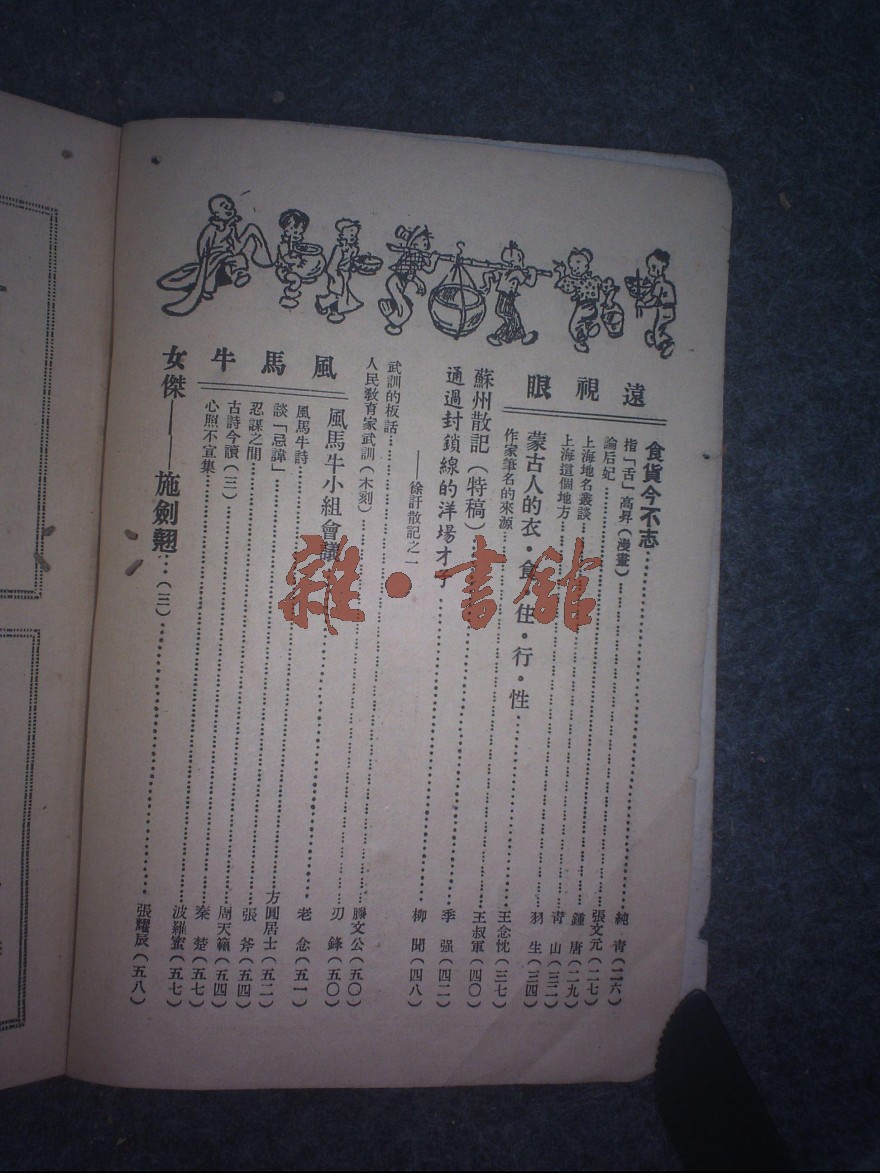 遠視眼
食貨今不志……純青(二六)
指「舌」高昇(漫畫)……張文元(二七)
論后妃……鍾唐(二九)
上海地名叢談……青山(三二)
上海這個地方……羽生(三四)
蒙古人的衣・食・住・行・性……王念忱(三七)
作家筆名的來源……王叔軍(四〇)
蘇州散記(特稿)……季强(四二)
通過封鎖線的洋場才子……柳聞(四八)
——徐訏散記之一
武訓的板話……滕文公(五〇)
人民敎育家武訓(木刻)……刃鋒(五〇)
風馬牛
風馬牛小組會議……老念(五一)
風馬牛詩……方圓居士(五二)
談「忌諱」……張斧(五四)
忍謀之間……周天籟(五四)
古詩今讀(三)……秦楚(五七)
心照不宣集……波羅蜜(五七)
女傑——施劍翹…(三)……張耀辰(五八)
雜・書館